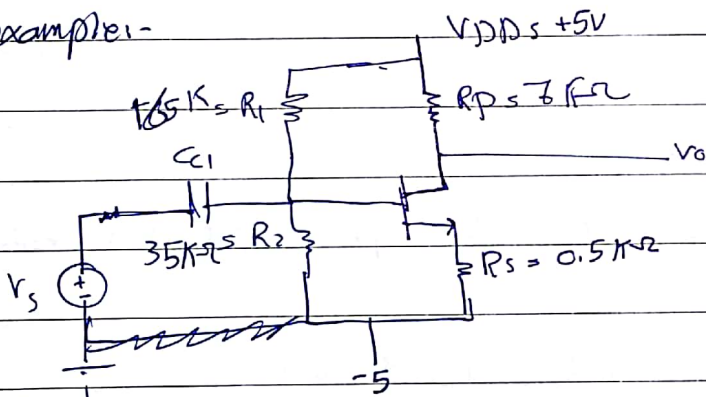 xample:-
VDD = +5V
165K = R1
RD = 7KΩ
CC1
Vo
35KΩ = R2
Rs = 0.5KΩ
Vs
+
-
-5